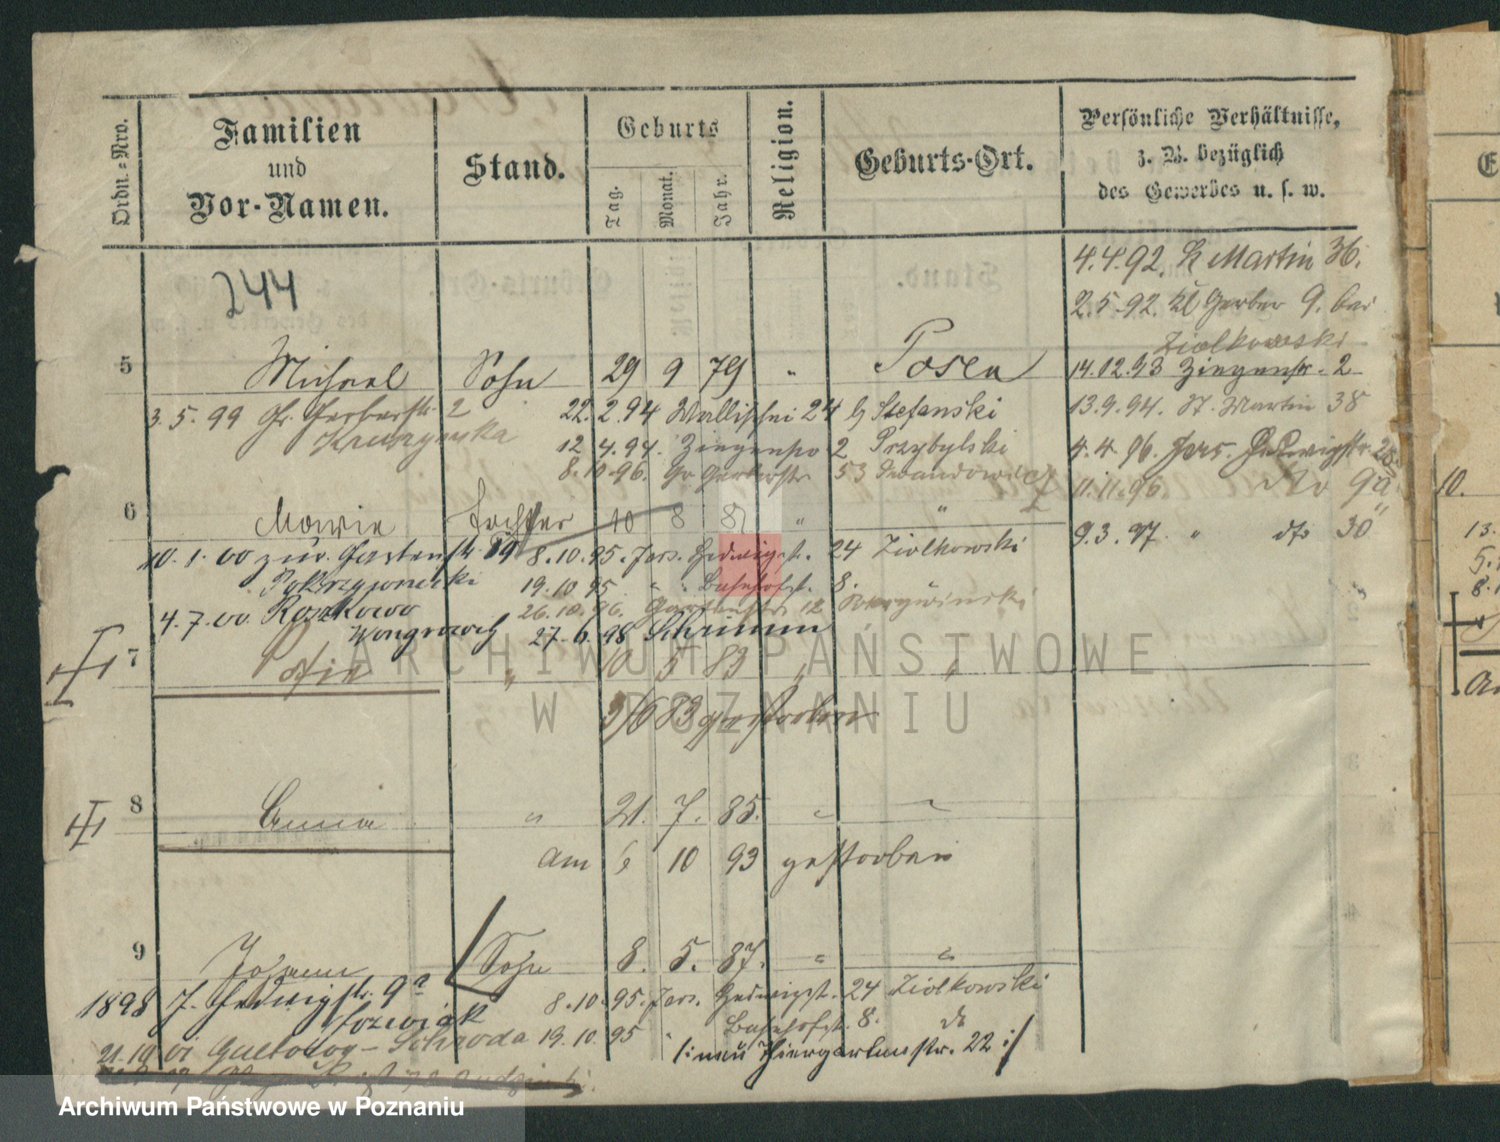 Ordn.-Nro.
Familien
und
Vor-Namen.
Stand.
Geburts
Tag.
Monat.
Jahr.
Religion.
Geburts-Ort.
Persönliche Verhältnisse,
z. B. bezüglich
des Gewerbes u. s. w.
244
4.4.92. St Martin 36.
2.5.92. Kl Gerber 9. bei
Ziolkowski
5 Michael Sohn 29 9 79 " Posen
14.12.93 Ziegenstr. 2
3.5.99 Gr. Gerberstr. 2
22.2.94 Wallischei 24 b Stefanski
13.9.94. St. Martin 38
12.4.94. Ziegenstr 2 Przybylski
4.4.96. Jers. Hedwigstr. 28
8.10.96. Gr Gerberstr. 53
11.11.96. dto 9a
6 Marie Tochter 10 8 81 " "
9.3.97. " dto 30
10.1.00 zur. Gartenstr. 19
8.10.95. Jers. Hedwigst. 24 Ziolkowski
19.10.95 " " Bahnhofst. 8.
4.7.00. Roszkowo
26.10.96. Gartenstr. 12
Wongrowitz
27.6.98 Schrimm
7 Sofie " 10 5 83 " "
3/6 83 gestorben
8 Anna " 21. 7. 85. " "
am 6 10 93 gestorben
9 Johann Sohn 8. 5. 87. " "
1898 7. Hedwigstr. 9a
8.10.95. Jers. Hedwigst. 24 Ziolkowski
19.10.95 " Bahnhofst. 8. do
21.10 01 Schroda
/: neu Thiergartenstr. 22 :/
ARCHIWUM PAŃSTWOWE
W POZNANIU
Archiwum Państwowe w Poznaniu